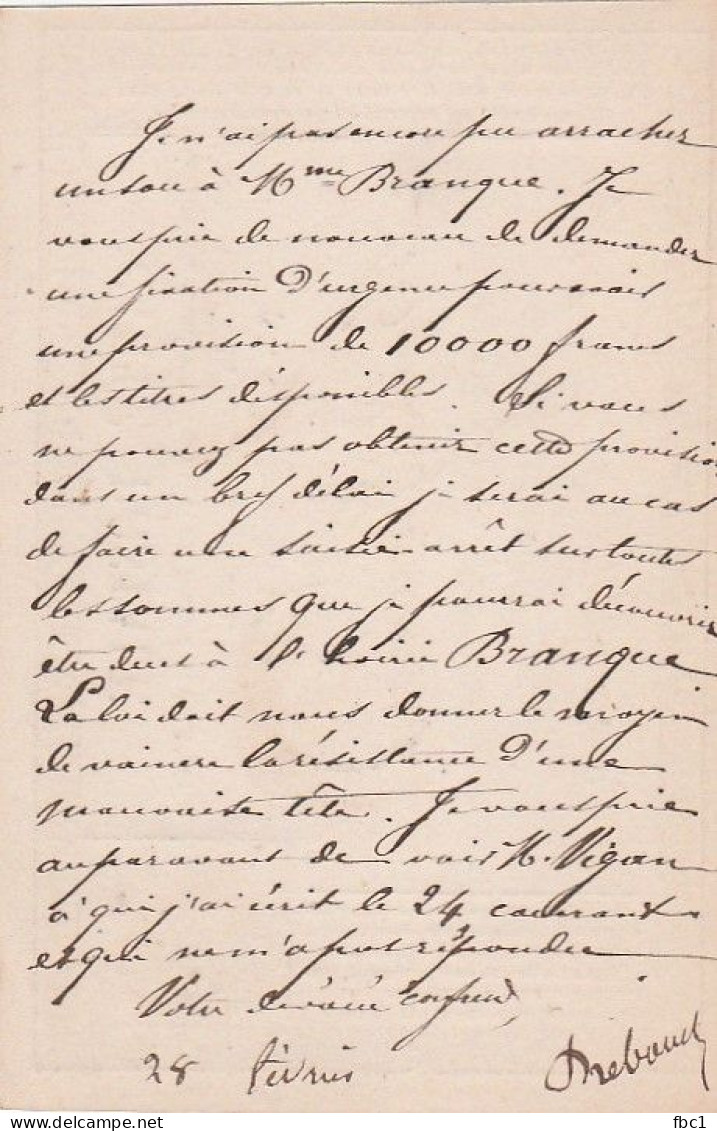 Je n'ai pas encore pu arracher
un sou à Mme Branque. Je
vous prie de nouveau de demander
une fixation d'urgence pour avoir
une provision de 10000 francs
et les titres disponibles. Si vous
ne pouvez pas obtenir cette provision
dans un bref délai je serai au cas
de faire une saisie-arrêt sur toutes
les sommes que je pourrai découvrir
être dues à l'hoirie Branque
La loi doit nous donner le moyen
de vaincre la résistance d'une
mauvaise tête. Je vous prie
auparavant de voir M. Vigan
à qui j'ai écrit le 24 courant
et qui ne m'a pas répondu
Votre dévoué confrère
28 février
fbc1